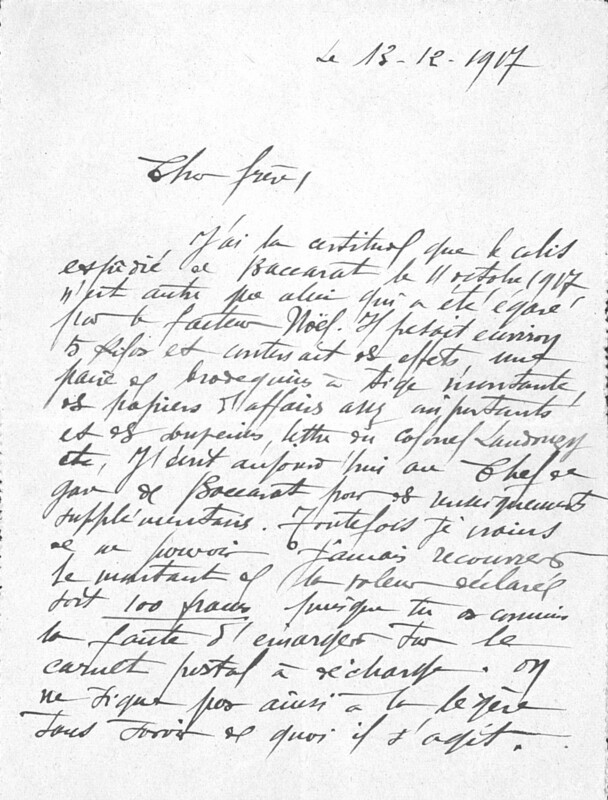 Le 13-12-1917
Cher frère,
J'ai la certitude que le colis
expédié de Baccarat le 11 octobre 1917
n'est autre que celui qui a été égaré
par le facteur Noël. Il pesait environ
5 kilos et contenait des effets une
paire de brodequins à tige montante,
des papiers d'affaires assez importants
et des souvenirs, lettre du colonel
etc, J'écrit aujourd'hui au Chef de
gare de Baccarat pour des renseignements
supplémentaires. Toutefois je crains
de ne pouvoir jamais recouvrer
le montant de la valeur déclarée
soit 100 francs puisque tu as commis
la faute d'émarger sur le
carnet postal à décharge. On
ne signe pas ainsi à la légère
sans savoir de quoi il s'agit.